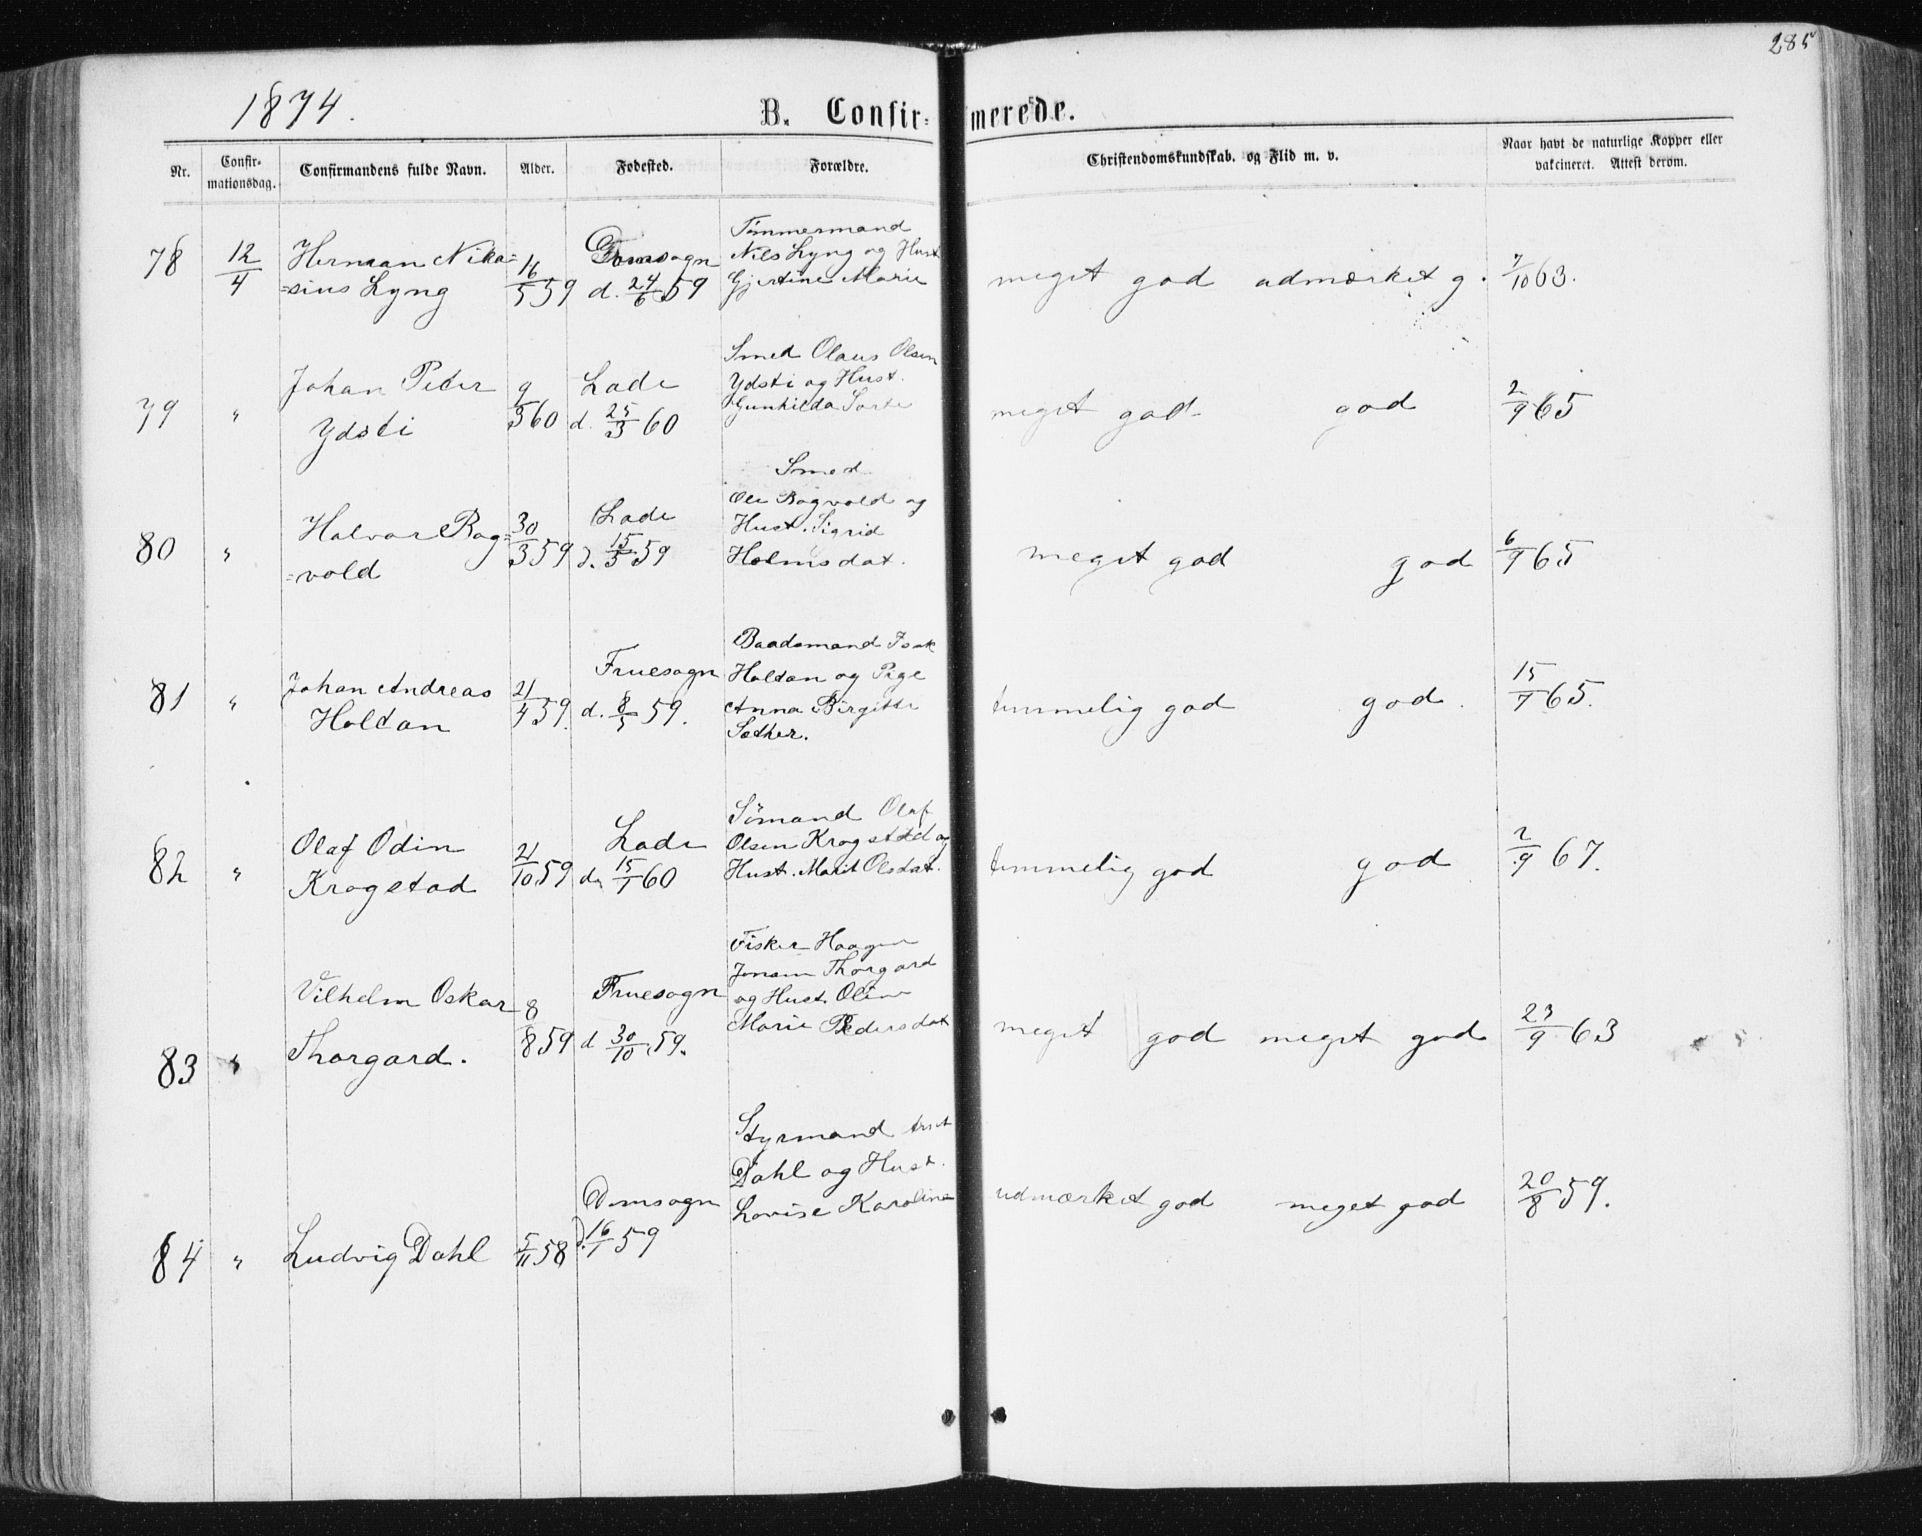 285
1874.
B. Confir-merede.
Nr.
Confir-mationsdag.
Confirmandens fulde Navn.
Alder.
Fødested.
Forældre.
Christendomskundskab. og Flid m. v.
Naar havt de naturlige Kopper eller vakcineret. Attest derom.
78 12/4 Herman Nika= 16/5 59 Domsogn Tömmermand
=sius Lyng d. 24/6 59 Nils Lyng og Hust
Gjertine Marie meget god udmærket g. 7/10 63.
Smed Olaus Olsen
79 " Johan Peter 9/3 60 Lade Ydsti og Hust.
Ydsti d. 25/3 60 Gunhilda meget god god 2/9 65
Smed
Ole Bogvold og
80 " Halvor Bog= 30/3 59 Lade Hust. Sigrid
=vold d. 15/5 59 Holmsdat. meget god god 6/9 65
Baadsmand Isak
81 " Johan Andreas 21/4 59. Fruesogn Holtan og Pige
Holtan d. 8/5 59. Anna Birgitte temmelig god god. 15/7 65.
Sæther.
Sömand Olaf
82 " Olaf Odin 21/10 59 Lade Olsen Krogstad og
Krogstad d. 15/1 60 Hust. Marit Olsdat. temmelig god god 2/9 67.
Fisker Haagen
Jensen Thorgard
Vilhelm Oskar 8/8 59 Fruesogn og Hust. Oline
83 " Thorgard. d 30/10 59. Marie Pedersdat meget god meget god 23/9 63
Styrmand
Dahl og Hust.
Domsogn Lovise Karoline udmærket god meget god 20/8 59.
84 " Ludvig Dahl 5/11 58 d. 16/1 59